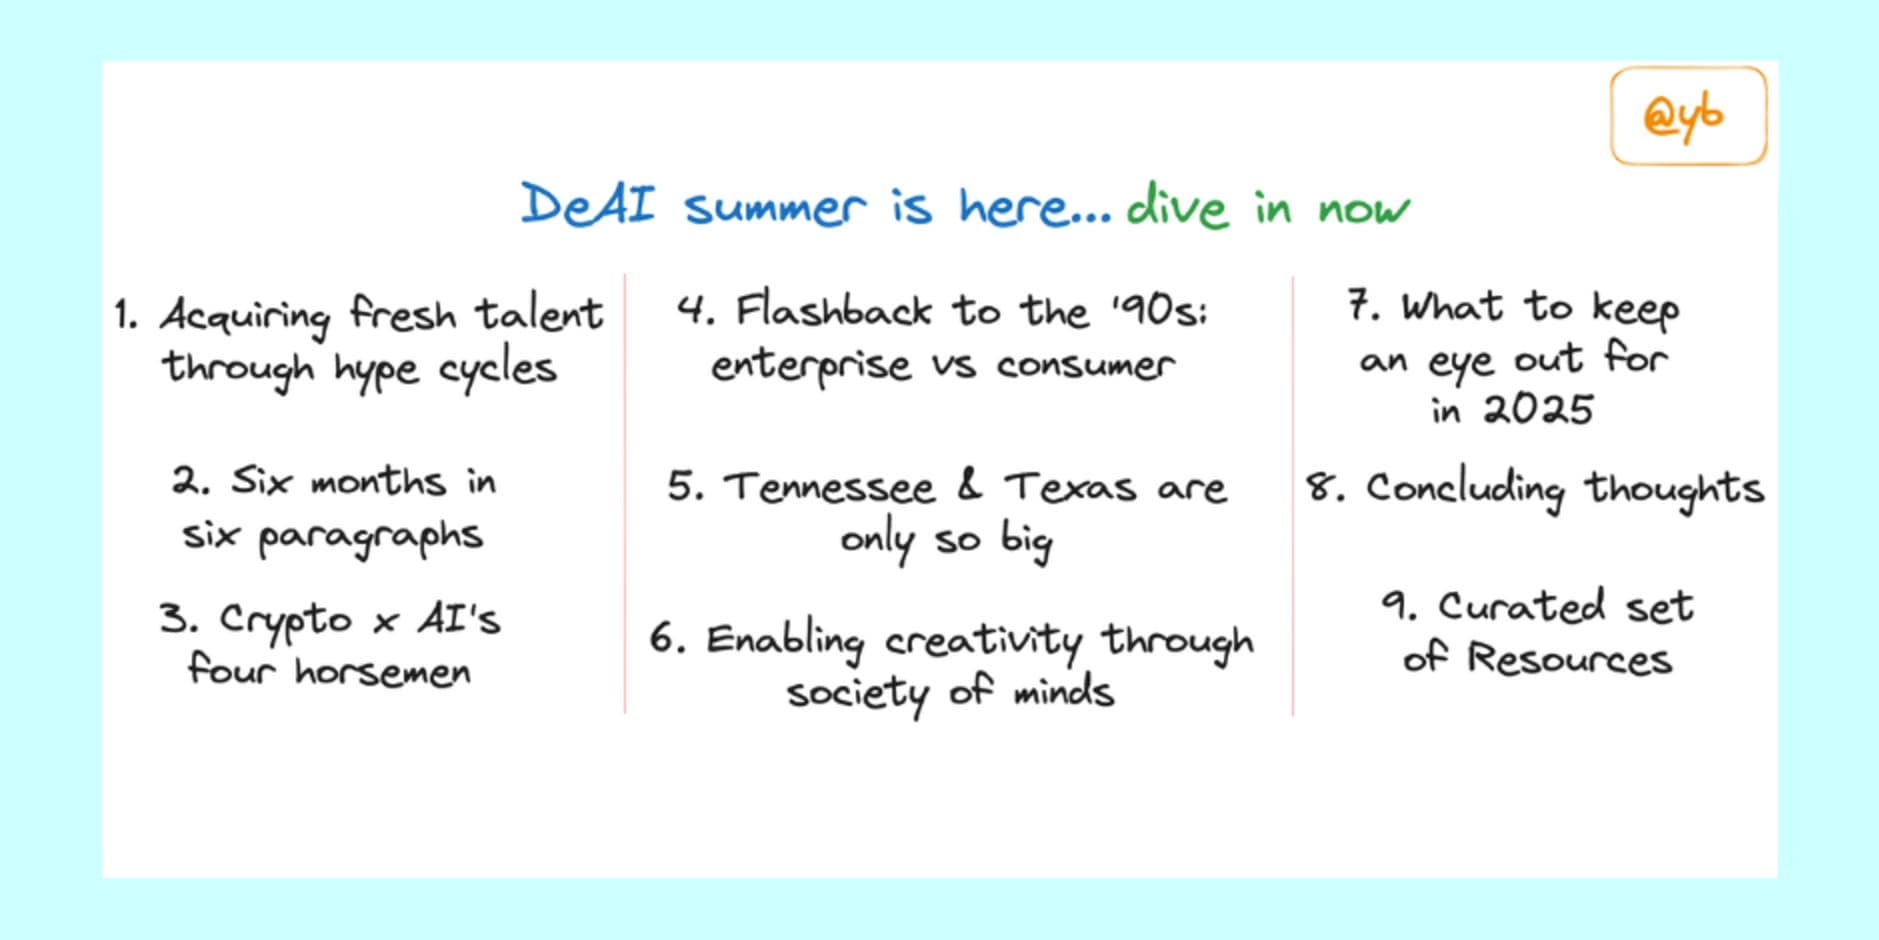 @yb
DeAI summer is here... dive in now
1. Acquiring fresh talent
through hype cycles
2. Six months in
six paragraphs
3. Crypto x AI's
four horsemen
4. Flashback to the '90s:
enterprise vs consumer
5. Tennessee & Texas are
only so big
6. Enabling creativity through
society of minds
7. What to keep
an eye out for
in 2025
8. Concluding thoughts
9. Curated set
of Resources